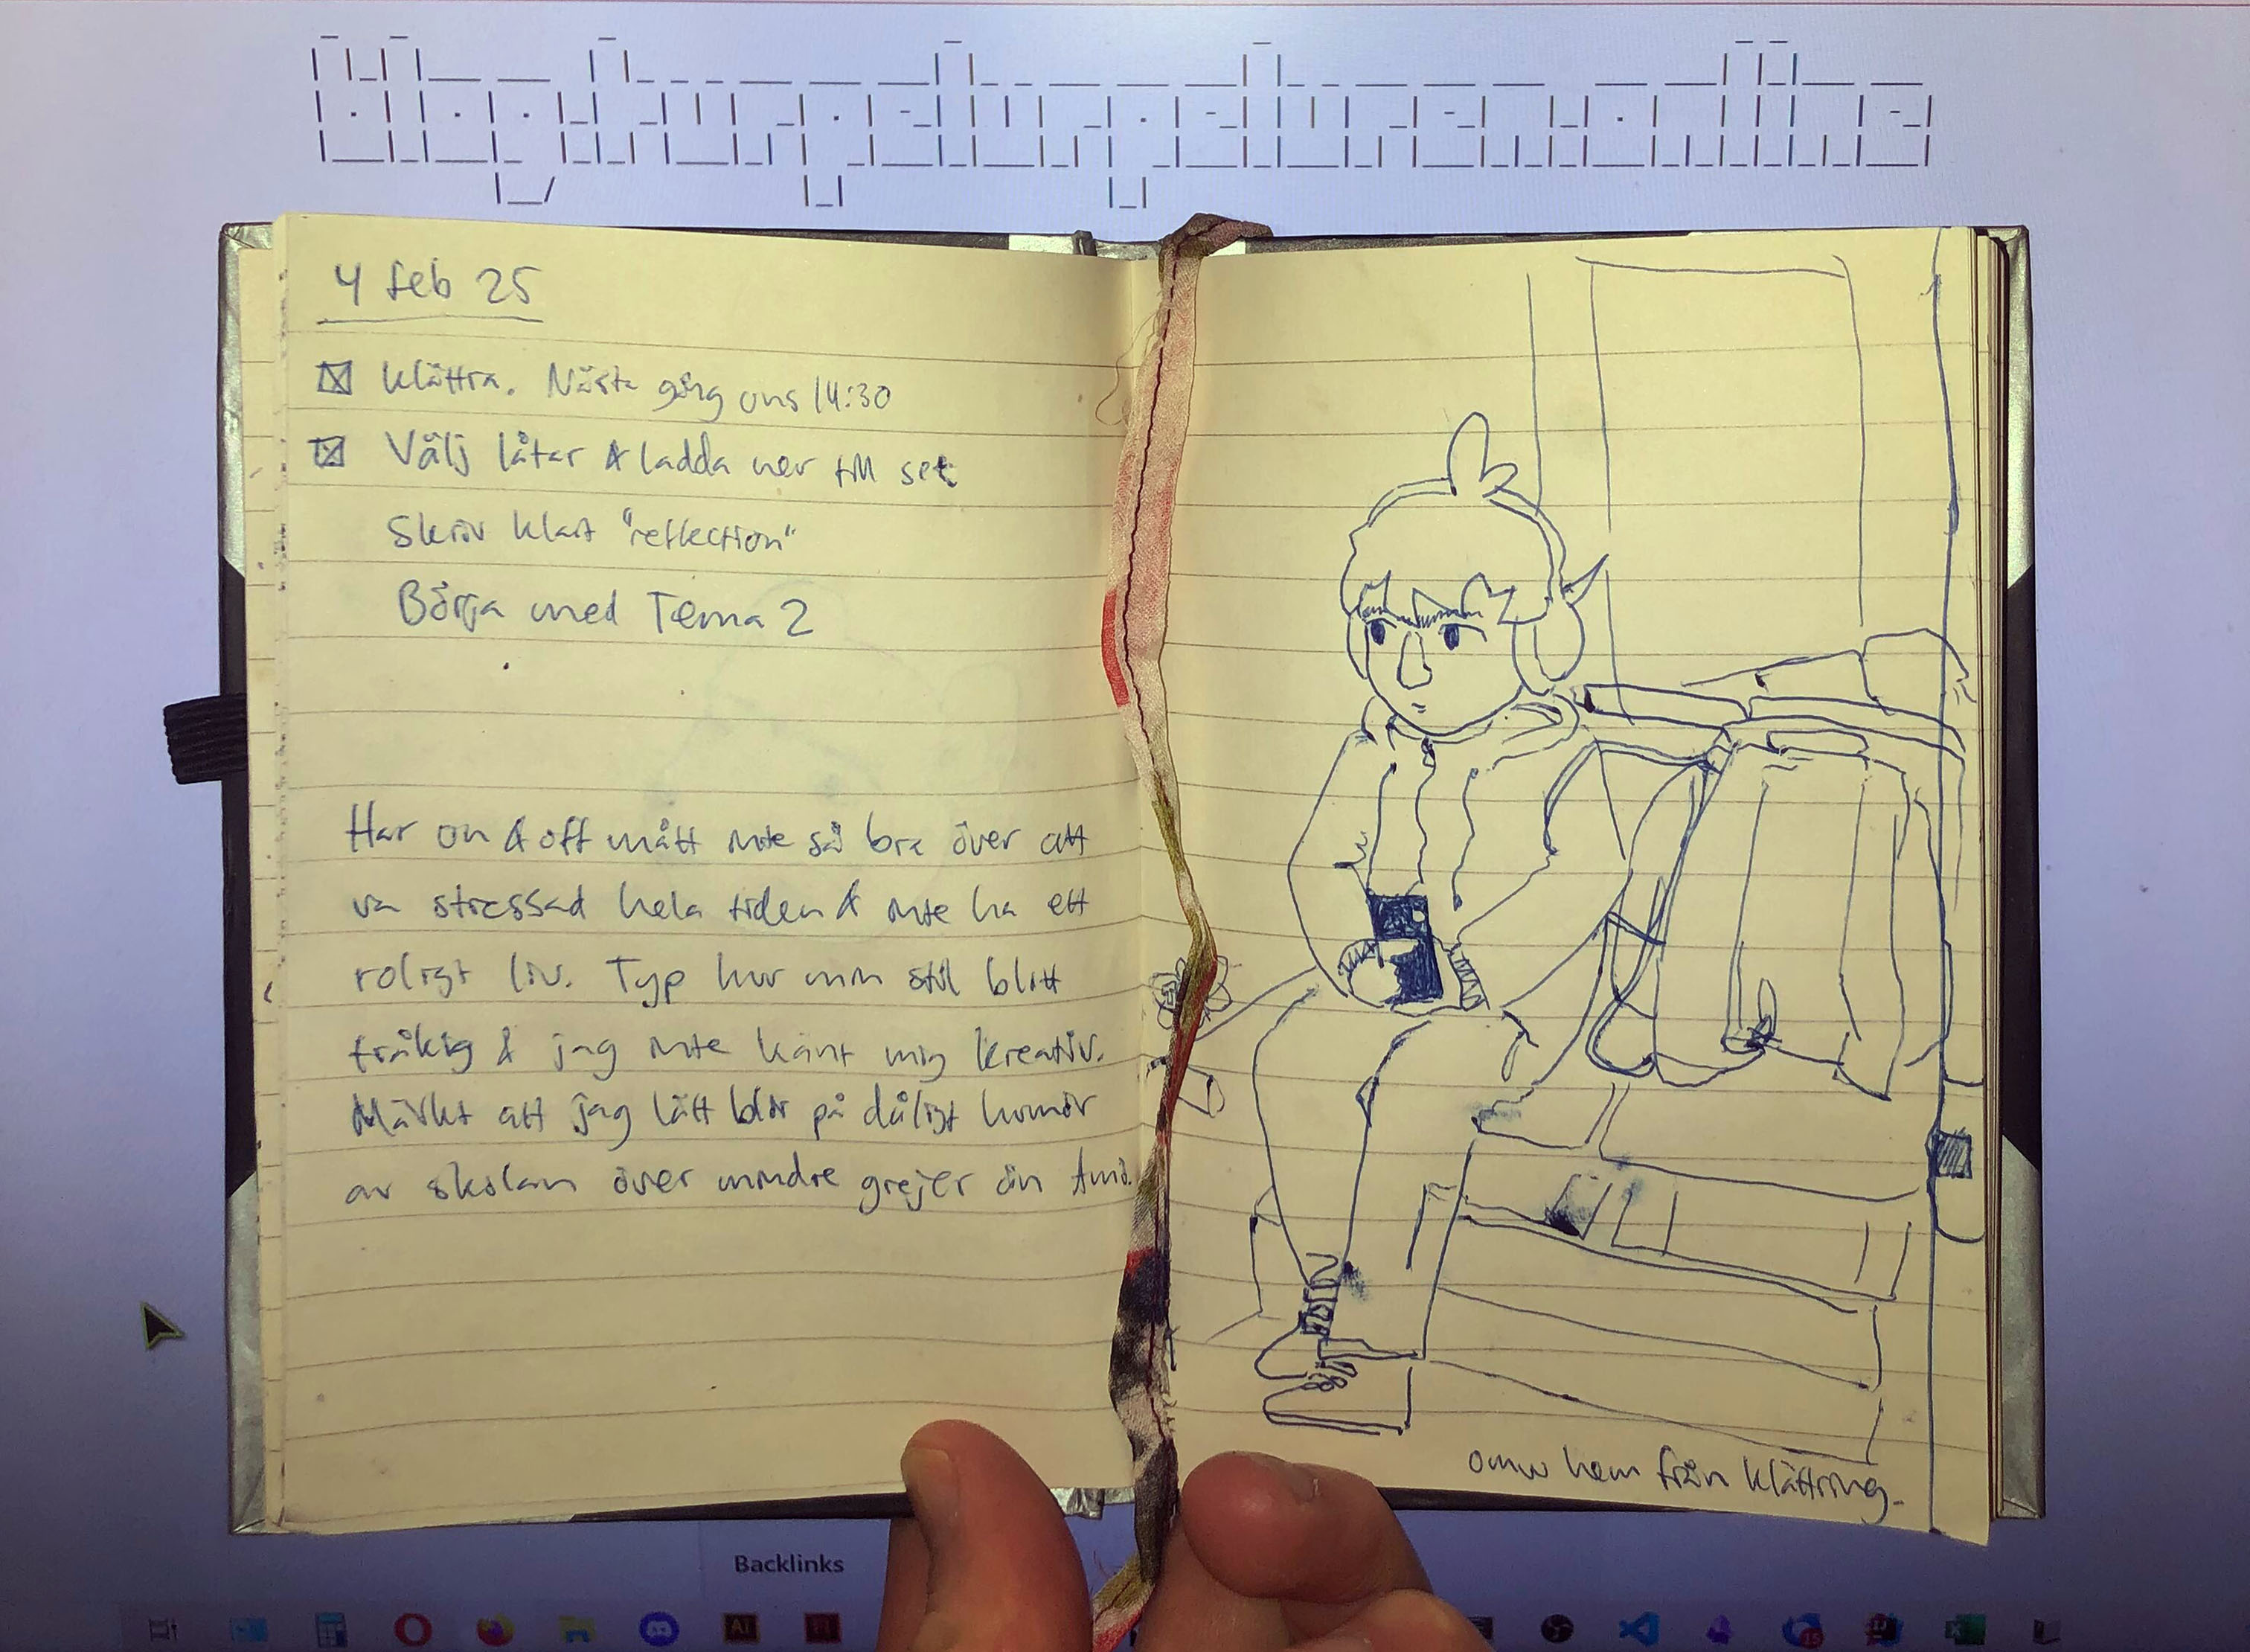 blog.hurpeturpeturen.online
4 feb 25
Klättra. Nästa gång ons 14:30
Välj låtar & ladda ner till set
Skriv klart "reflection"
Börja med Tema 2
Har on & off mått inte så bra över att
va stressad hela tiden & inte ha ett
roligt liv. Typ hur min stil blitt
tråkig & jag inte känt mig kreativ.
Märkt att jag lätt blir på dåligt humör
av skolan över mindre grejer än
omw hem från klättring.
Backlinks